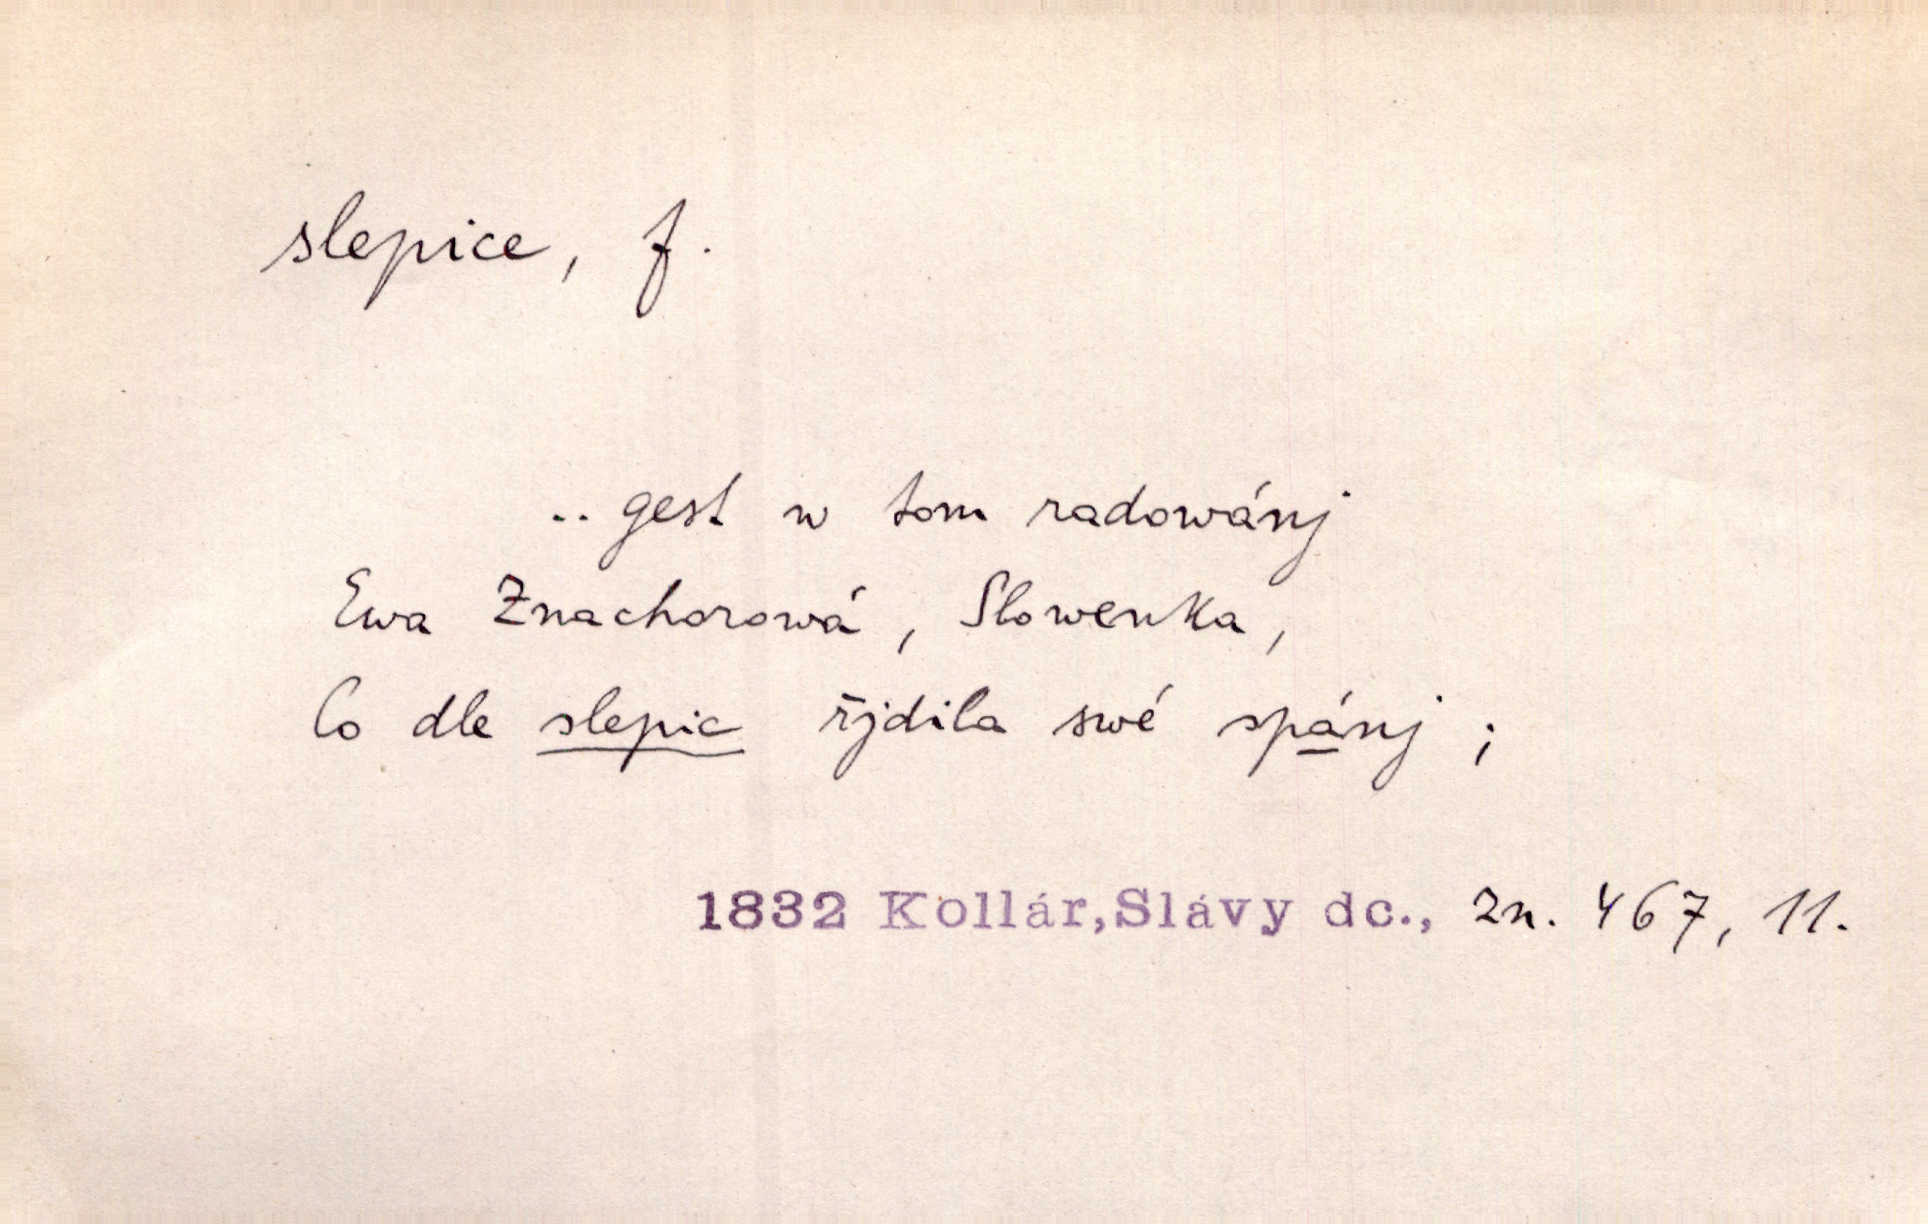 slepice, f.
.. gest w tom radowánj
Ewa Znachorowá, Slowenka,
Co dle slepic řjdila swé spánj ;
1832 Kollár,Slávy dc., zn. 467, 11.